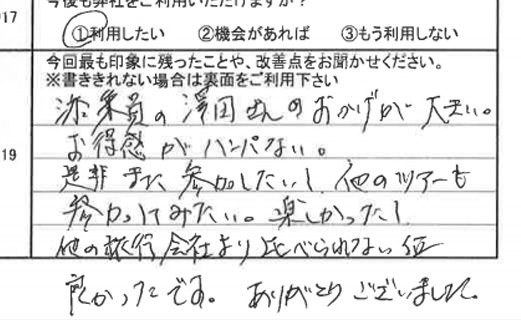 今後も弊社をご利用いただけますか？
17
①利用したい ②機会があれば ③もう利用しない
今回最も印象に残ったことや、改善点をお聞かせください。
※書ききれない場合は裏面をご利用下さい
添乗員の澤田さんのおかげが大きい。
19
お得感がハンパない。
是非また参加したい！他のツアーも
参加してみたい。楽しかった！
他の旅行会社より比べられない位
良かったです。ありがとうございました。